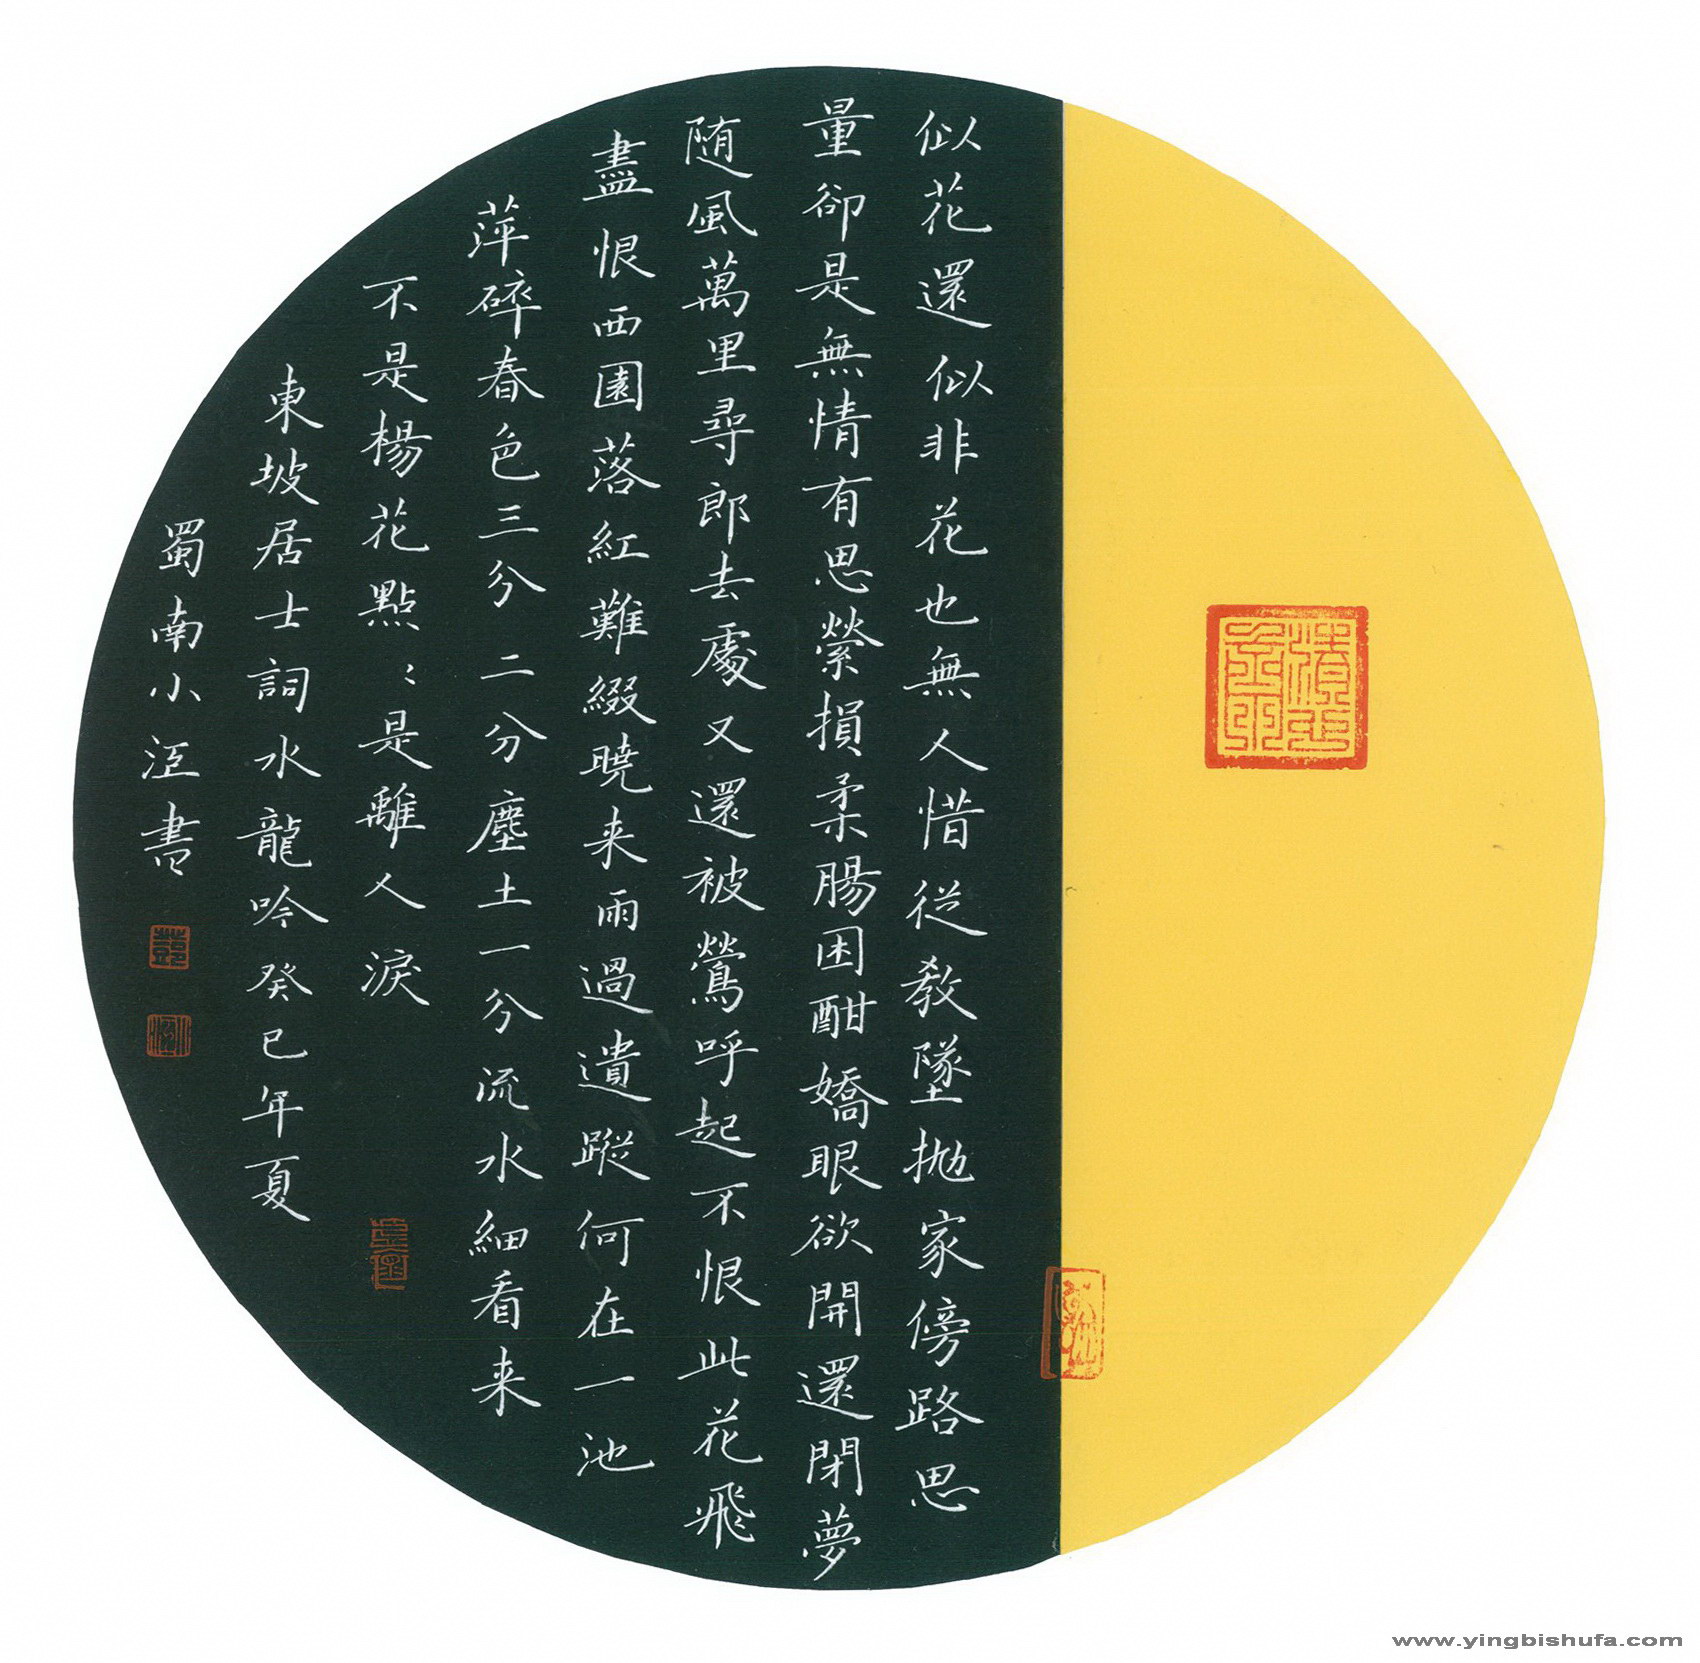 似花還似非花也無人惜從教墜拋家傍路思
量卻是無情有思縈損柔腸困酣嬌眼欲開還閉夢
随風萬里尋郎去處又還被鶯呼起不恨此花飛
盡恨西園落紅難綴曉来雨過遺蹤何在一池
萍碎春色三分二分塵土一分流水細看来
不是楊花點〻是離人淚
東坡居士詞水龍吟癸巳年夏
蜀南小江書
www.yingbishufa.com